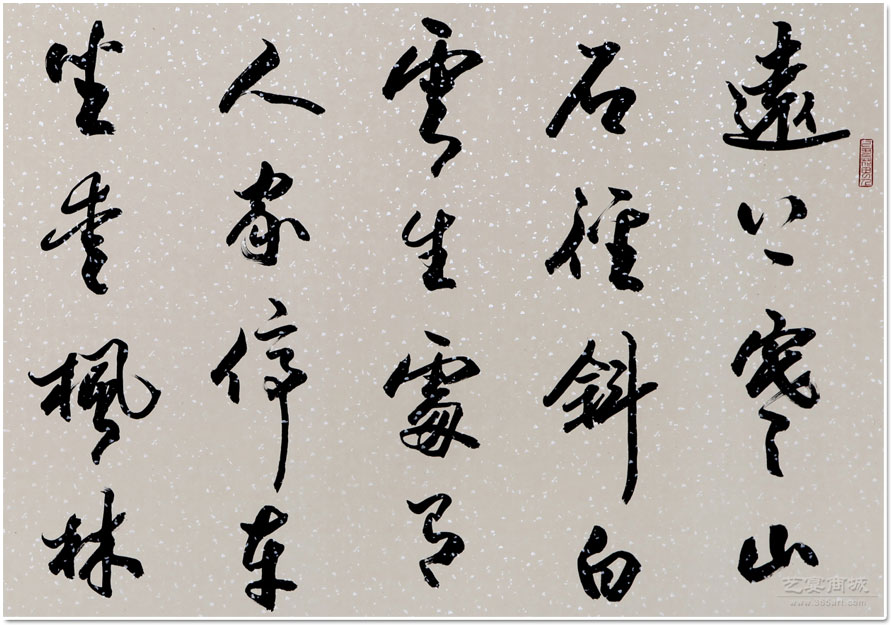 遠上寒山
石徑斜白
雲生處有
人家停车
坐愛楓林
商城
www.365art.com